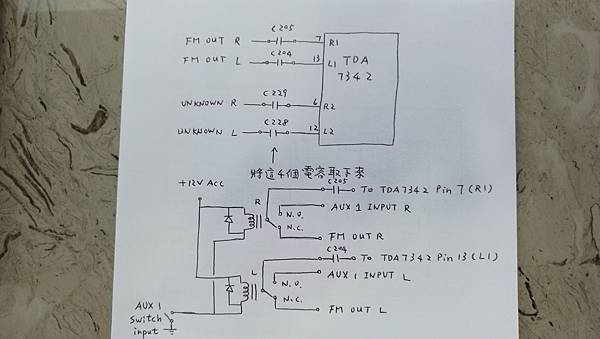 FM OUT R C205 7 R1
FM OUT L C204 13 L1
TDA
7342
UNKNOWN R C229 6 R2
UNKNOWN L C228 12 L2
將這4個電容取下來
+12V Acc
C205 To TDA7342 Pin 7 (R1)
R
N.O. AUX 1 INPUT R
N.C. FM OUT R
C204 To TDA7342 Pin 13 (L1)
L
N.O. AUX 1 INPUT L
N.C. FM OUT L
AUX 1
Switch
input